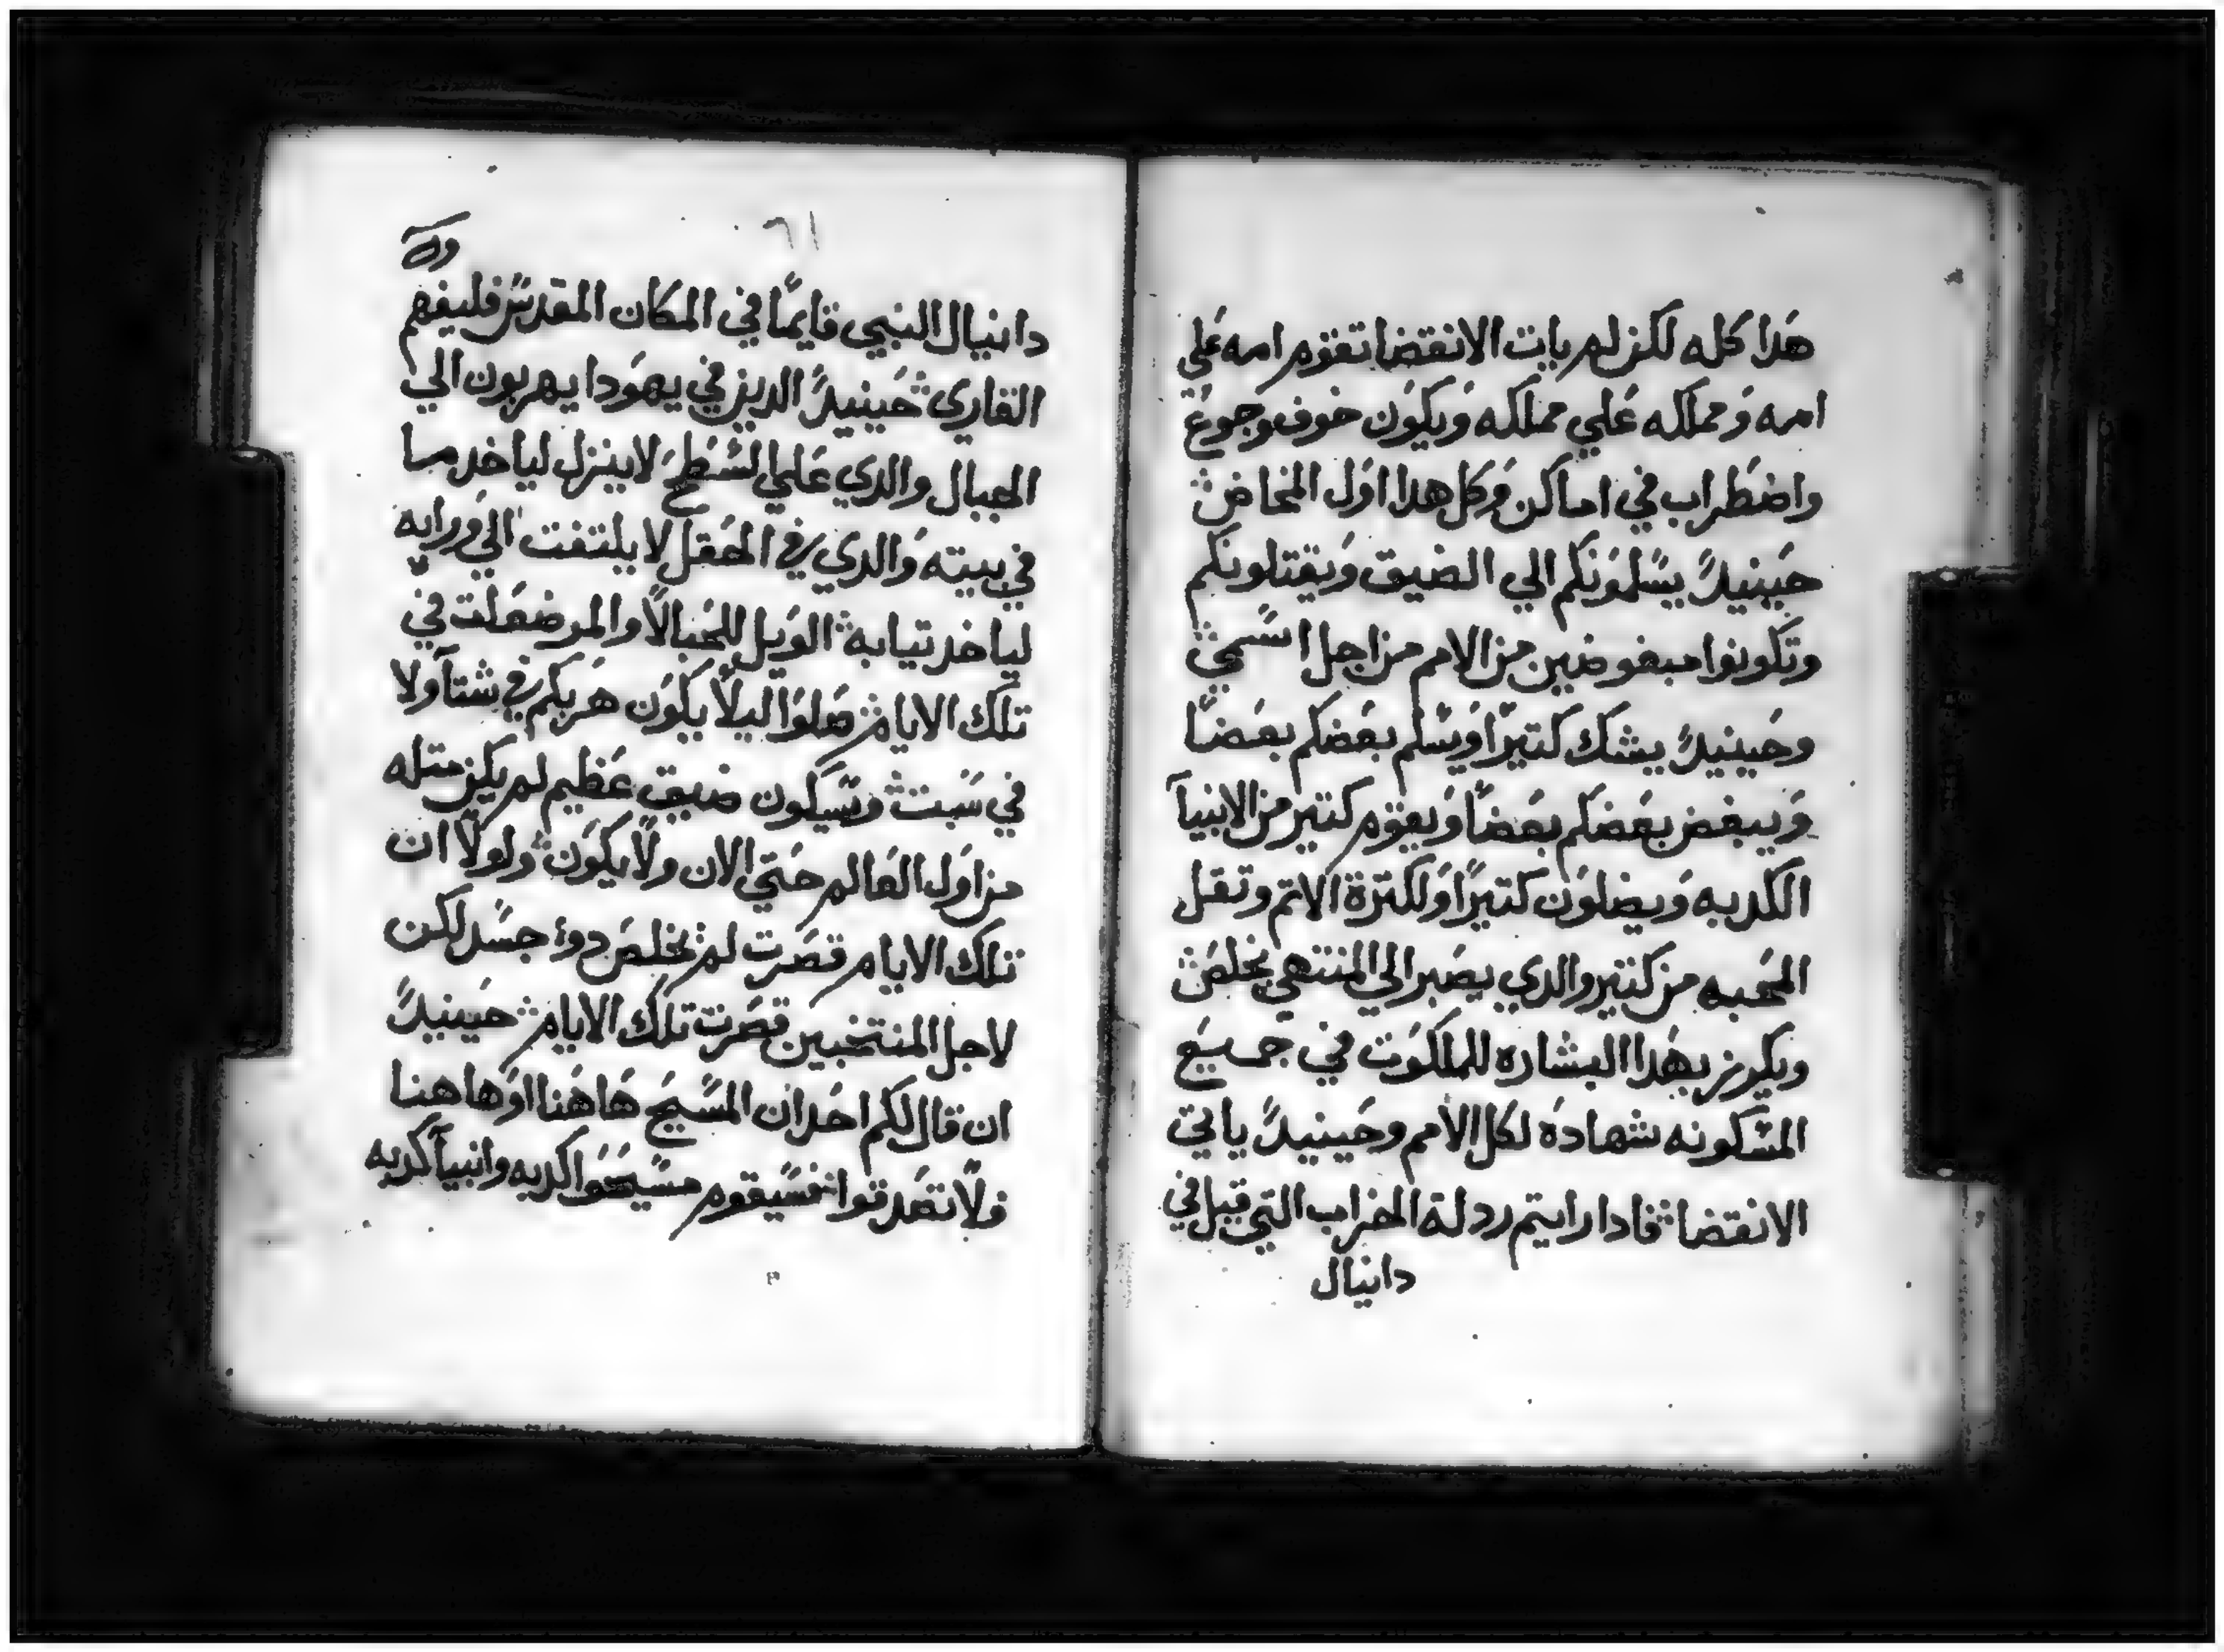 هدا كله لكن لم يات الانقضا تقوم امه علي
امه ومملكه علي مملكه ويكون خوف وجوع
واضطراب في اماكن وكل هدا اول المخاض
حينيدً يسلمونكم الي الضيق ويقتلونكم
وتكونوا مبغوضين من الامم من اجل اسمي
وحينيدً يشك كتيرًا ويسلم بعضكم بعضًا
ويبغض بعضكم بعضًا ويقوم كتير من الانبيآ
الكدبه ويضلون كتيرًا ولكترة الاتم وتقل
المحبه من كتير والدي يصبر الي المنتهي يخلص
ويكرز بهدا البشاره للملكوت في جميع
المسكونه شهاده لكل الامم وحينيدً ياتي
الانقضا فادا رايتم ردلة الخراب التي قيل في
دانيال
٦١
دانيال النبي قايمًا في المكان المقدس فليفهم
القاري حينيدً الدين في يهودا يهربون الي
الجبال والدي علي السطح لا ينزل لياخد ما
في بيته والدي في الحقل لا يلتفت الي ورايه
لياخد تيابه الويل للحبالا والمرضعات في
تلك الايام صلوا ليلا يكون هربكم في شتآ ولا
في سبت وسيكون ضيق عظيم لم يكن متله
من اول العالم حتي الان ولا يكون ولولا ان
تلك الايام قصرت لم يخلص دو جسد لكن
لاجل المنتخبين قصرت تلك الايام حينيدً
ان قال لكم احد ان المسيح هاهنا او هاهنا
فلا تصدقوا فسيقوم مسيحوا كدبه وانبيآ كدبه